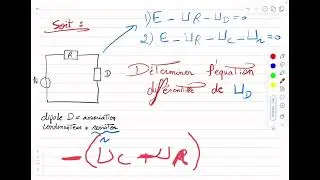 Soit :
1) E - U_R - U_D = 0
2) E - U_R - U_C - U_r = 0
R
D
Déterminer l'équation
différentielle de U_D
dipole D = association
condensateur + resistor
r
- (U_C + U_R)